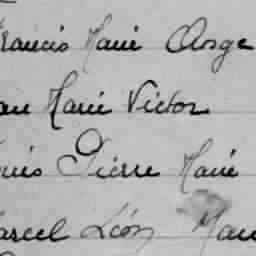 Francis Marie Ange
Jean Marie Victor
Louis Pierre Marie
Marcel Léon Mau